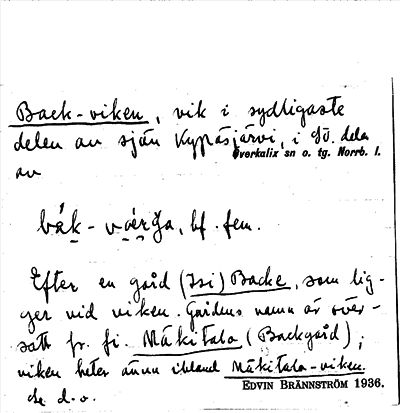 Back-viken, vik i sydligaste
delen av sjön Kypäsjärvi, i sö. dela
Överkalix sn o. tg. Norrb. l.
av
bf. fem.
Efter en gård (Isi) Backe, som lig-
ger vid viken. Gårdens namn är över-
satt fr. fi. Mäkitalo (Backgård);
viken heter ännu ibland Mäkitalo-viken.
EDVIN BRÄNNSTRÖM 1936.
Se d.o.